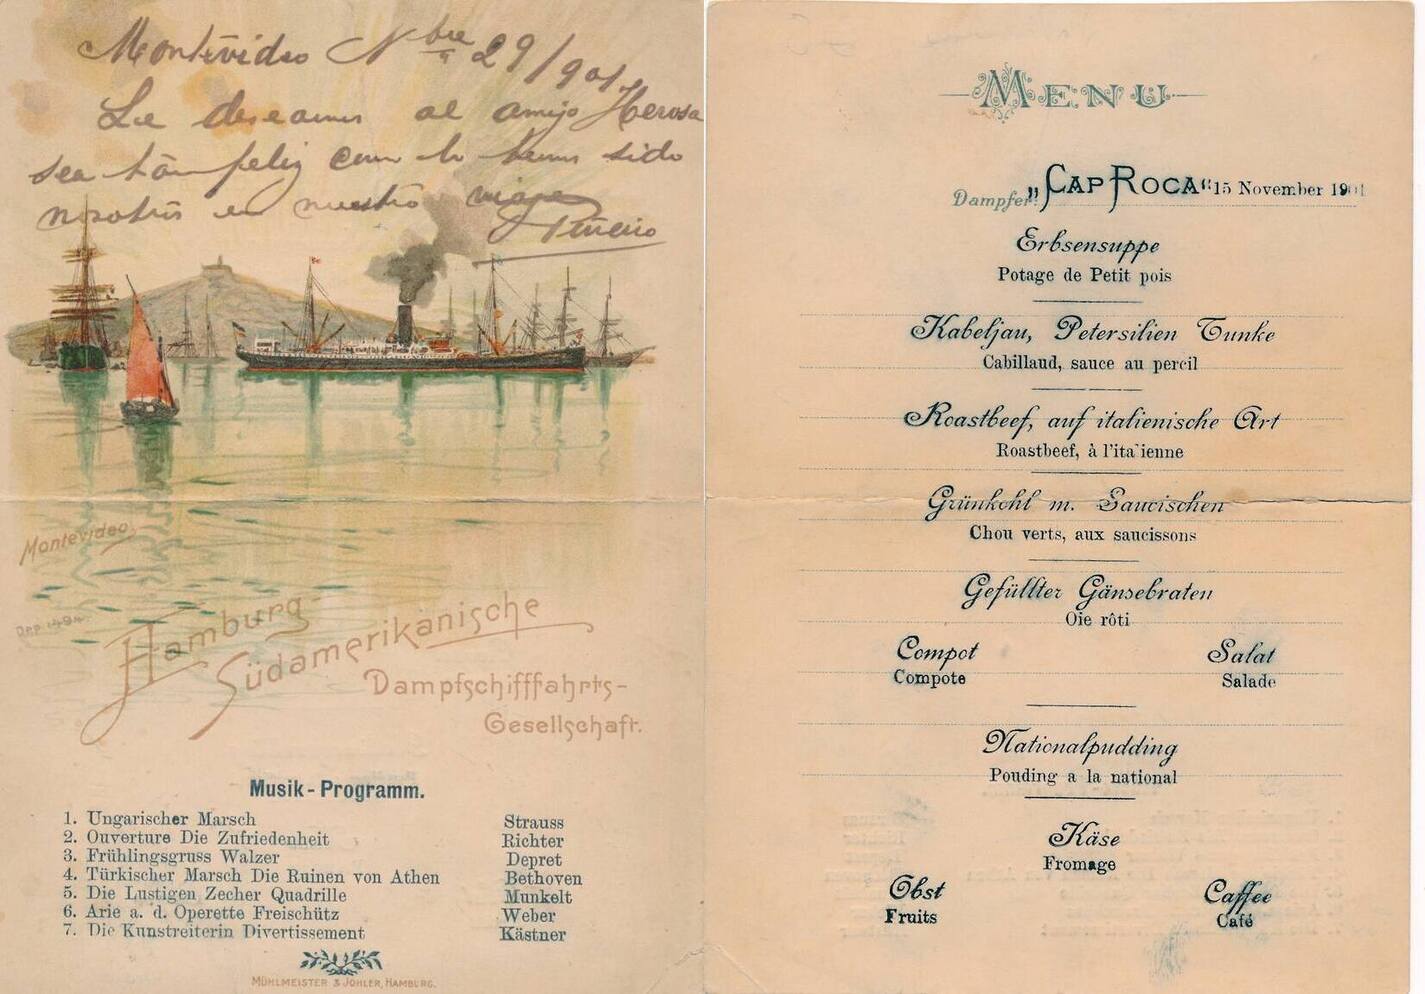 Montevideo Nbre 29/901
Le deseamos al amigo Herosa
sea tan feliz como lo hemos sido
nosotros en nuestro viaje
Piñeiro
Montevideo
Dep. 1494.
Hamburg
Südamerikanische
Dampfschifffahrts-
Gesellschaft.
Musik-Programm.
1. Ungarischer Marsch Strauss
2. Ouverture Die Zufriedenheit Richter
3. Frühlingsgruss Walzer Depret
4. Türkischer Marsch Die Ruinen von Athen Bethoven
5. Die Lustigen Zecher Quadrille Munkelt
6. Arie a. d. Operette Freischütz Weber
7. Die Kunstreiterin Divertissement Kästner
MÜHLMEISTER & JOHLER, HAMBURG.
MENU
Dampfer: „CAP ROCA“ 15 November 1901
Erbsensuppe
Potage de Petit pois
Kabeljau, Petersilien Tunke
Cabillaud, sauce au percil
Roastbeef, auf italienische Art
Roastbeef, à l'italienne
Grünkohl m. Saucischen
Chou verts, aux saucissons
Gefüllter Gänsebraten
Oie rôti
Compot Salat
Compote Salade
Nationalpudding
Pouding a la national
Käse
Fromage
Obst Caffee
Fruits Café